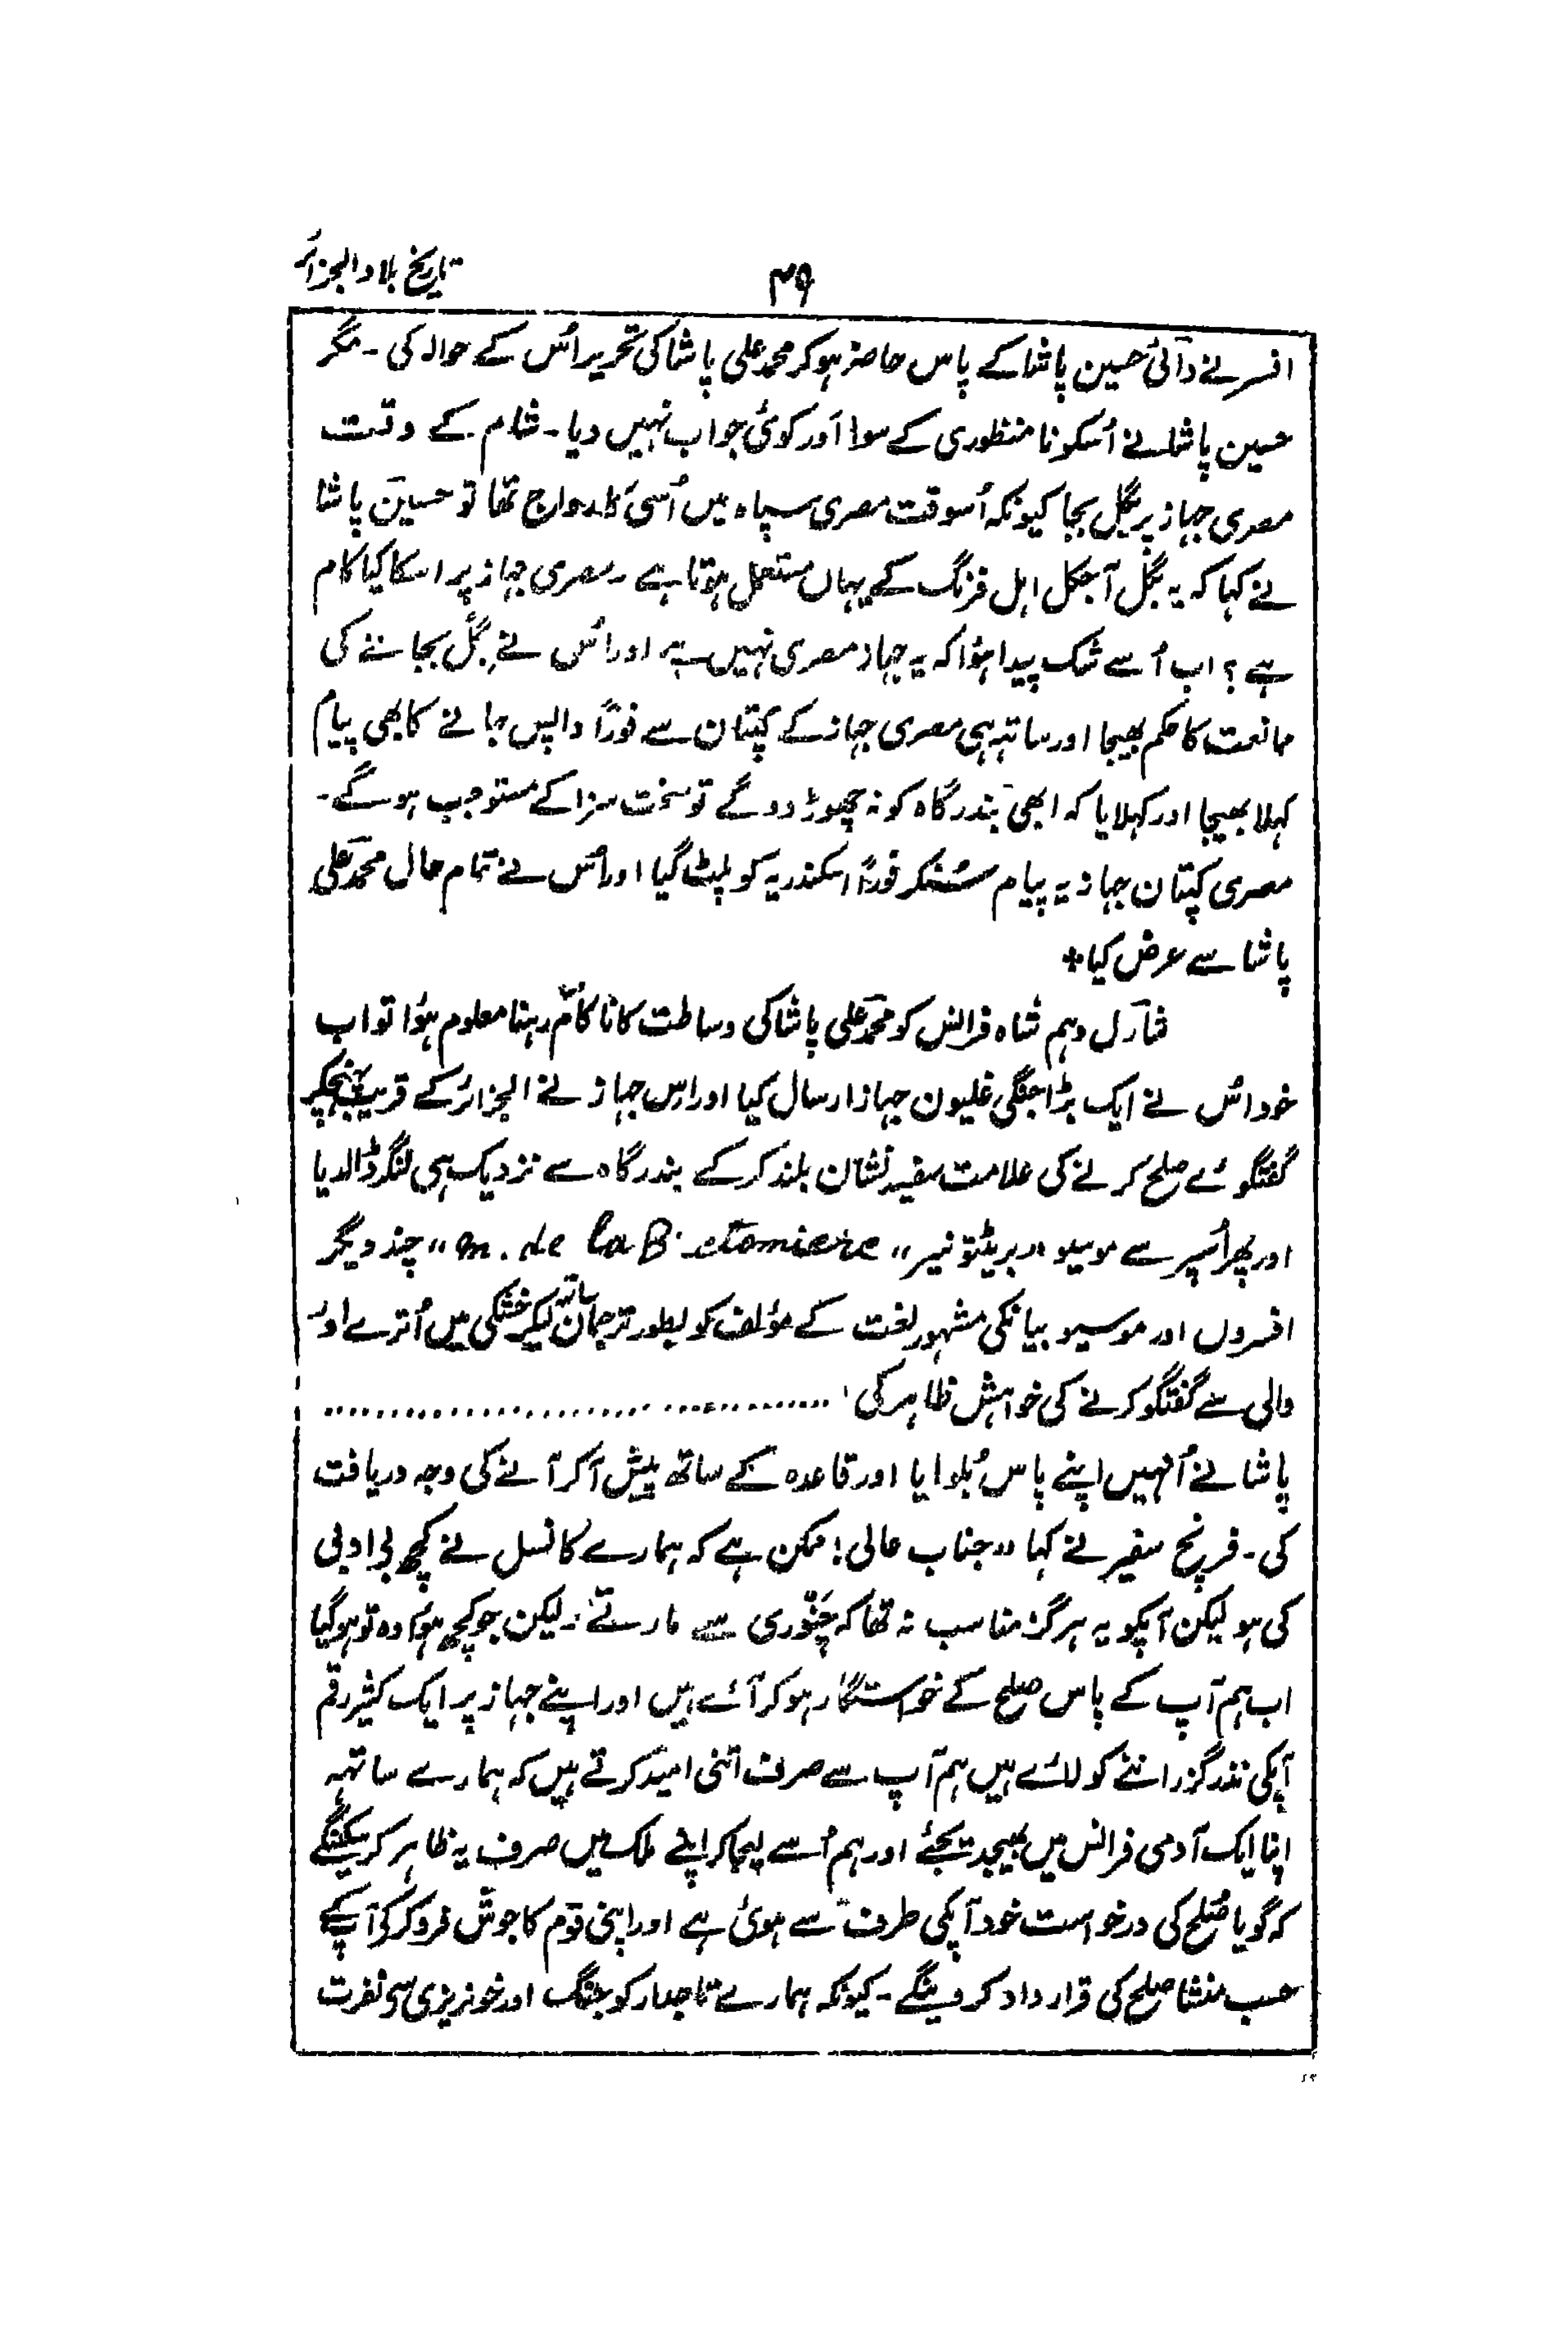 تاریخ بلاد الجزائر
۴۹
افسر نے دآئی حسین پاشا کے پاس حاضر ہوکر محمد علی پاشا کی تحریر اُس کے حوالہ کی ۔ مگر
حسین پاشا نے اُسکو نا منظوری کے سوا اَور کوئی جواب نہیں دیا ۔ شام کے وقت
مصری جہاز پر بگل بجا کیونکہ اُسوقت مصری سپاہ میں اُسی کا رواج تھا تو حسین پاشا
نے کہا کہ یہ بگل آجکل اہل فرنگ کے یہاں مستعمل ہوتا ہے ۔ مصری جہاز پر اسکا کیا کام
ہے ؟ اب اُسے شک پیدا ہؤا کہ یہ جہاز مصری نہیں ہے اور اُس نے بگل بجاننے کی
ممانعت کا حکم بھیجا اور ساتہہ ہی مصری جہاز کے کپتان سے فوراً واپس جانے کا بھی پیام
کہلا بھیجا اور کہلایا کہ ابھی بندرگاہ کو نہ چھوڑ دو گے تو سخت سزا کے مستوجب ہو گے ۔
مصری کپتان جہاز یہ پیام سُنکر فوراً اسکندریہ کو پلٹ گیا اور اُس نے تمام حال محمد علی
پاشا سے عرض کیا +
شارل دہم شاہ فرانس کو محمد علی پاشا کی وساطت کا ناکام رہنا معلوم ہؤا تو اب
خود اُس نے ایک بڑا جنگی غلیون جہاز ارسال کیا اور اِس جہاز نے الجزائر کے قریب پہنچکر
گفتگوئے صلح کرنے کی علامت سفید نشان بلند کرکے بندرگاہ سے نزدیک ہی لنگر ڈالدیا
اور پھر اُسپر سے موسیو "بریٹونیر" "m. de la B. etomiere" چند دیگر
افسروں اور موسیو بیانکی مشہور لغت کے مؤلف کو بطور ترجمان ساتہہ لیکر خشکی میں اُترے اور
والی سے گفتگو کرنے کی خواہش ظاہر کی ..............................
پاشا نے اُنہیں اپنے پاس بُلوایا اور قاعدہ کے ساتھ پیش آکر آنے کی وجہ دریافت
کی ۔ فرنچ سفیر نے کہا "جناب عالی ! ممکن ہے کہ ہمارے کانسل نے کچھ بے ادبی
کی ہو لیکن آپکو یہ ہرگز مناسب نہ تھا کہ چَنْوری سے مارتے ۔ لیکن جو کچھ ہؤا وہ تو ہو گیا
اب ہم آپ کے پاس صلح کے خواستگار ہوکر آئے ہیں اور اپنے جہاز پر ایک کثیر رقم
آپکی نذر گزراننے کو لائے ہیں ہم آپ سے صرف اتنی امید کرتے ہیں کہ ہمارے ساتہہ
اپنا ایک آدمی فرانس میں بھیجدیجئے اور ہم اُسے لیجاکر اپنے ملک میں صرف یہ ظاہر کرسکینگے
کہ گویا صُلح کی درخواست خود آپکی طرف سے ہوئی ہے اور اپنی قوم کا جوش فرو کرکر آپکے
حسب منشا صلح کی قرارداد کر دینگے ۔ کیونکہ ہمارے تاجدار کو جنگ اور خونریزی سے نفرت